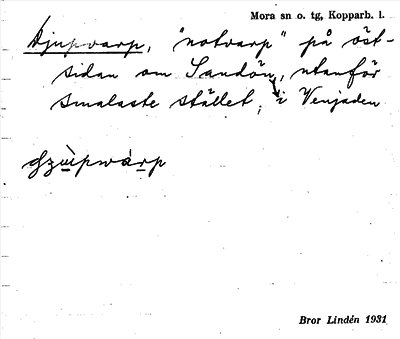 Mora sn o. tg, Kopparb. l.
Djupvarp, "notvarp" på öst-
sidan om Sandön, utanför
smalaste stället, i Venjaden
dzùpwàrp
Bror Lindén 1931